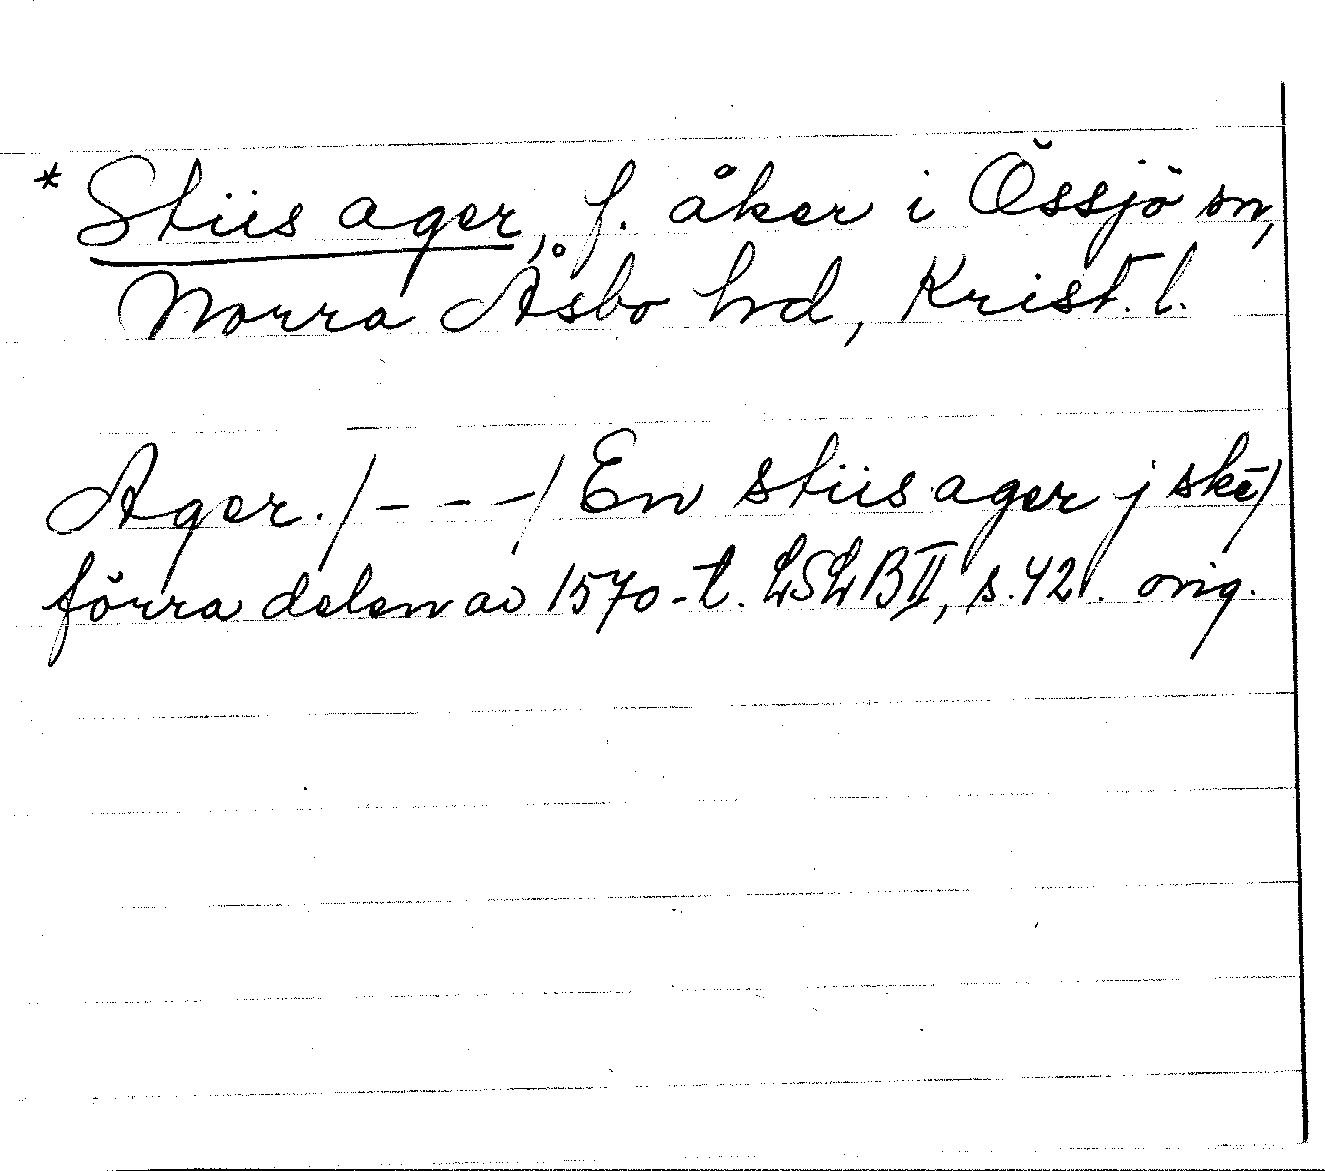 * Stiis ager, f. åker i Össjö sn,
Norra Åsbo hd, Krist. l.
Ager. /- - -/ En stiis ager j skē/
förra delen av 1570-t. LSLB II, s. 421. orig.